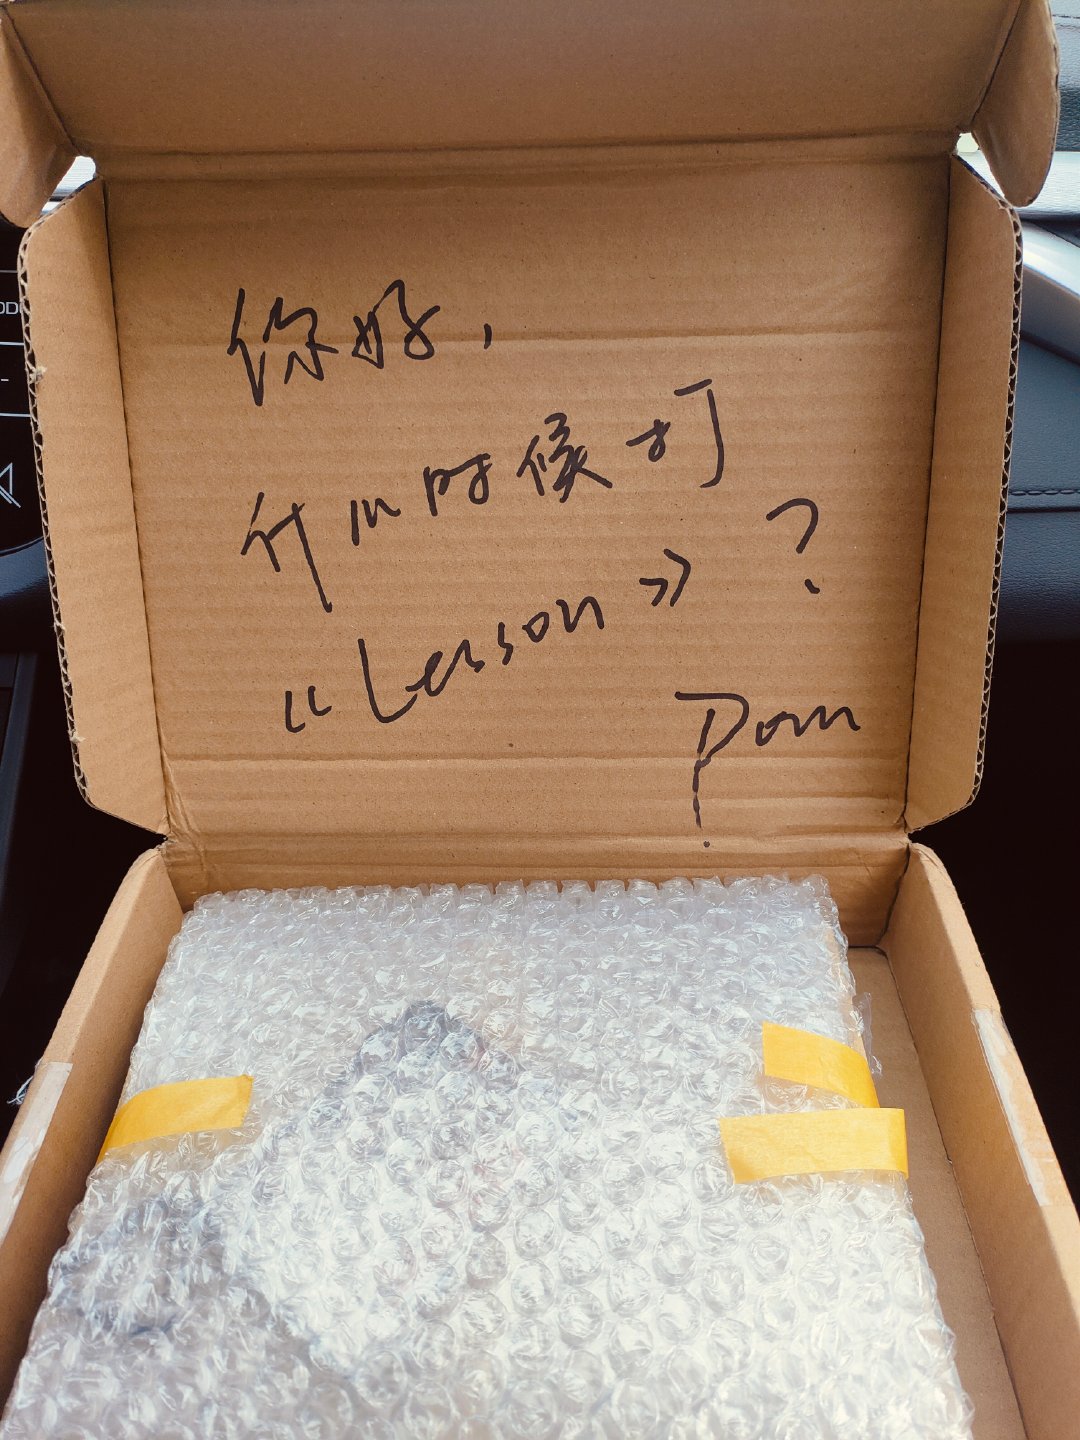 你好，
什么时候打
《Lesson》？